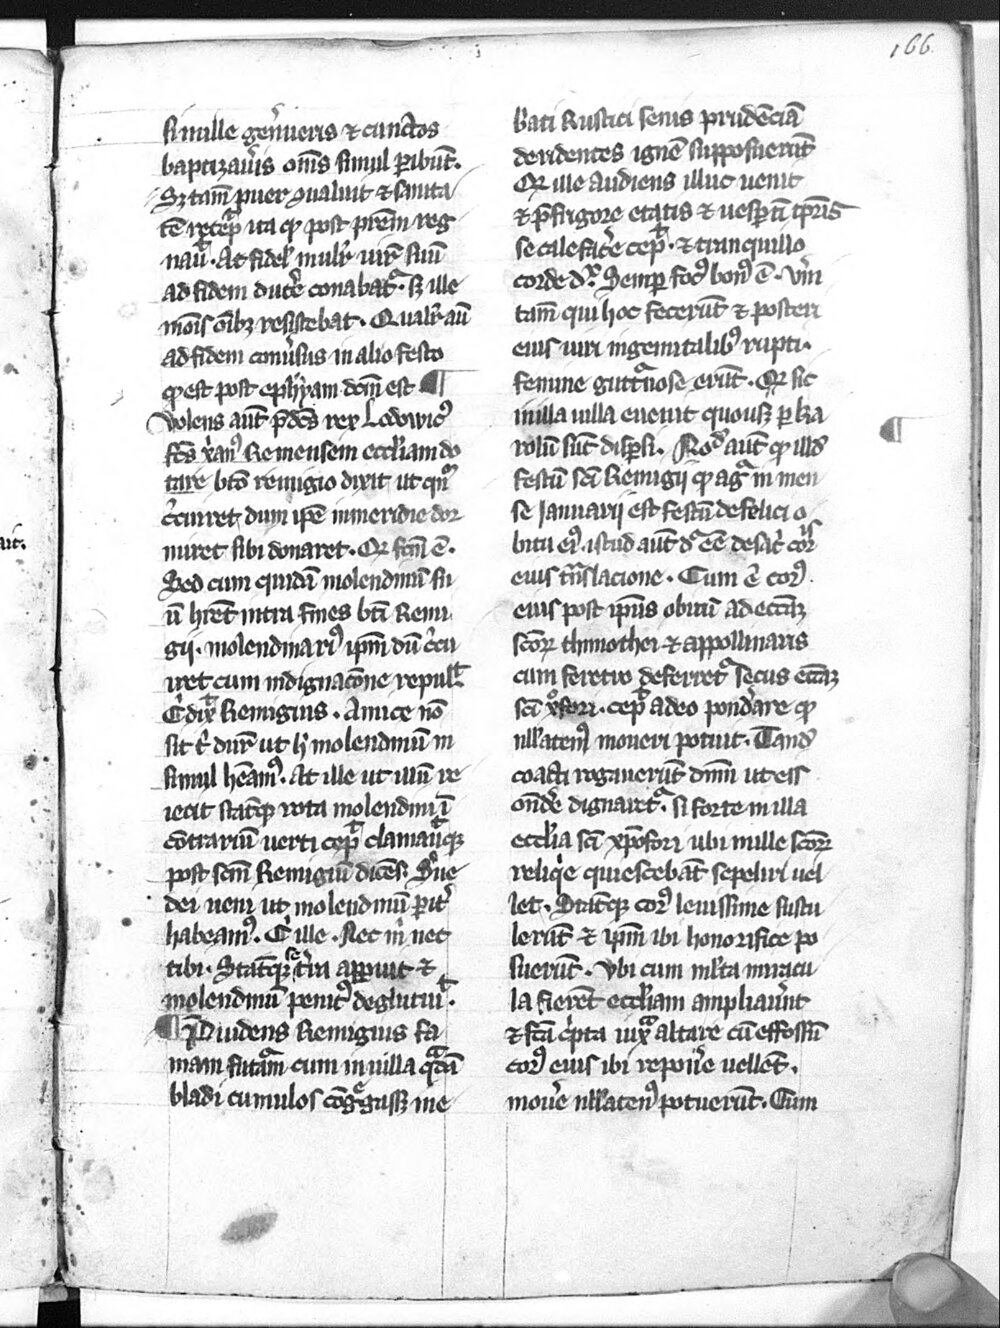 166
si mille gen̄ueris ⁊ cunctos
baptizau̾is om̅s simul ꝑibūt.
Sꝫ tam̄ puer ꝯualuit ⁊ sanita
tē recep̄ ita ꝙ post prēm reg
nau̾. At fidel̾ mulr̾ uirū suū
ad fidem duce̾ conabat̾. sꝫ ille
mōis oībꝫ resistebat. Qualr̾ au̅
ad fidem conu̾sus in alio festo
ꝙ est post ephȳam dom̄ est ¶
Volens aūt p̄dc̄s rex Lodowicꝰ
fc̄s xp̄ianꝰ Remensem eccl̄iam do
tare bt̄o remigio dixit ut qn̄
c̾cuiret dum ip̄e in meridie dor
miret sibi donaret. Qꝛ fc̄m ē.
Sed cum quidā molendinū su
ū hr̄et intra fines bt̄i Remi
gii. molendinariꝰ ip̄m dū c̾cu
iret cum indignac̄one repul̾.
C̾ dix̾ Remigius. Amice nō
sit t̾ dur̄ ut h̾ molendinū in
simul hēamꝰ. At ille ut illū re
iecit statīꝙ rota molendini ī
cōtrariū uerti cep̾ clamau̾qꝫ
post sc̄m Remigiū dicēs. S̾ue
dei ueni ut molendinū ꝑit̾
habeamꝰ. C̾ ille. Nec m̾ nec
tibi. Statīqꝫ se t̾ra apperuit ⁊
molendinū penitꝰ deglutiu̾.
¶ P̾uidens Remigius fa
mam futam̄ cum in uilla q̄dā
bladi cumulos cōg̾gassꝫ ine
b̾ati Rustici senis prudēciā
deridentes ignē supposuerūt
Qꝛ ille audiens illuc uenit
⁊ p̄ frigore etatis ⁊ uesp̾ti tp̄ris
se caleface̾ cep̾. ⁊ tranquillo
corde dr̾. Semꝑ focꝰ bonꝰ ē. Vn̄
tam̄ qui hoc fecerūt ⁊ posteri
eius uiri in genitalibꝰ rupti.
femine gutt̾nose erūt. Qꝛ sic
in illa uilla euenit quousqꝫ ꝑ ka
rolū sūt disꝑsi. Nod̾ aūt ꝙ illd̾
festū sc̄i Remigij ꝙ ag̾ in men
se Januarij est festū de felici o
bitu eiꝰ. istud aūt d̾ eē de sac̾ cor̾is
eius tn̄slacione. Cum .e. corꝰ
eius post ip̄ius obitū ad ecc̄aꝫ
sc̄oꝝ thimothei ⁊ appollinaris
cum feretro deferret̾ secus ecc̄aꝫ
sc̄i xōfori. cep̾ adeo ponde̾are ꝙ
nll̾atenꝰ moueri potuit. Tand̾
coacti rogauerūt dnm̄ ut eis
onde̾ dignaret̾. si forte in illa
eccl̄ia sc̄i xp̄ofori ubi mille sc̄oꝝ
reliqe̾ quiescebāt sepeliri uel
let. Statīqꝫ corꝰ leuissime sustu
lerūt ⁊ ip̄m ibi honorifice po
suerūt. Vbi cum ml̾ta miracu
la fierēt eccl̄iam ampliau̾nt
⁊ fc̄a c̾pta iux̾ altare cū effossū
corꝰ eius ibi repone̾ uellēt.
moue̾ nll̾atenꝰ potuerūt. Cum